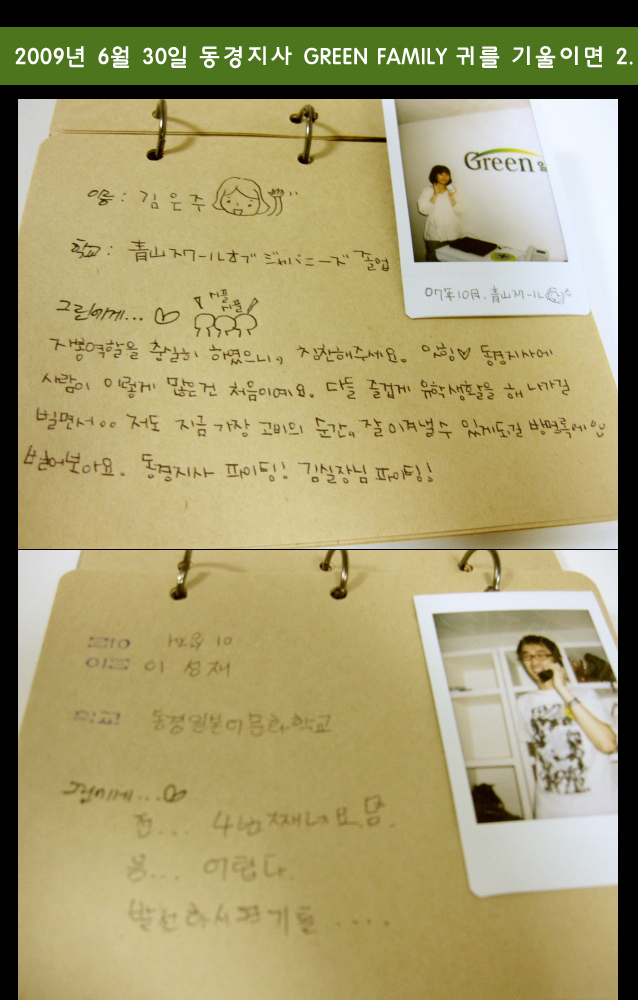 2009년 6월 30일 동경지사 GREEN FAMILY 귀를 기울이면 2.
Green 일
이름 : 김은주
학교 : 青山スクールオブジャパニーズ 졸업
07年10月. 青山スクール
그린에게...
지붕
지붕
지붕역할을 충실히 하였으니, 칭찬해주세요. 있힝♡ 동경지사에
사람이 이렇게 많은건 처음이예요. 다들 즐겁게 유학생활을 해 나가길
빌면서.. 저도 지금 가장 고비의 순간, 잘 이겨낼 수 있게도 방명록에
빌어보아요. 동경지사 파이팅! 김실장님 파이팅!
10
이름 이 성재
학교 동경일본어문화학교
그린에게...
전... 4번째네요.
음... 어렵다.
발전하시젼기를 ....